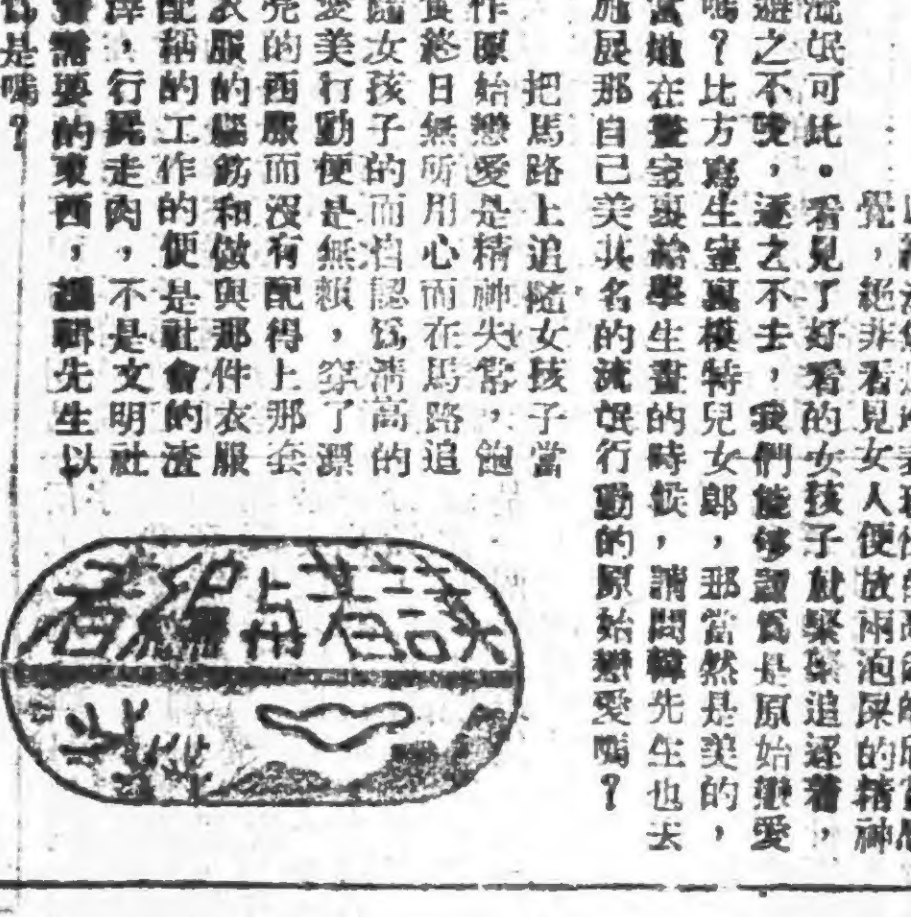 覺，絕非看見女人便放兩泡屎的精神
流氓可此。看見了好看的女孩子就緊緊追逐着，
避之不暇，逐之不去，我們能够認爲是原始戀愛
嗎？比方寫生室裏模特兒女郎，那當然是美的，
當她在畫室裏給學生畫的時候，請問韓先生也去
施展那自己美其名的流氓行動的原始戀愛嗎？
把馬路上追隨女孩子當
作原始戀愛是精神失常，飽
食終日無所用心而在馬路追
隨女孩子的而自認爲清高的
愛美行動便是無賴，穿了漂
亮的西服而沒有配得上那套
衣服的腦筋和做與那件衣服
配稱的工作的便是社會的渣
滓，行屍走肉，不是文明社
會需要的東西，編輯先生以
爲是嗎？
讀者與編者